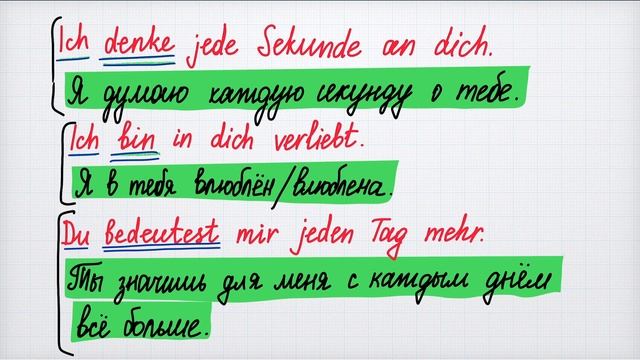 Ich denke jede Sekunde an dich.
Я думаю каждую секунду о тебе.
Ich bin in dich verliebt.
Я в тебя влюблён/влюблена.
Du bedeutest mir jeden Tag mehr.
Ты значишь для меня с каждым днём
всё больше.